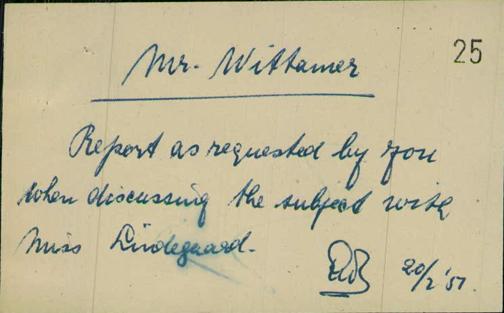 25
Mr. Wittamer
Report as requested by you
when discussing the subject with
Miss Lindegaard.
20/2 '51.